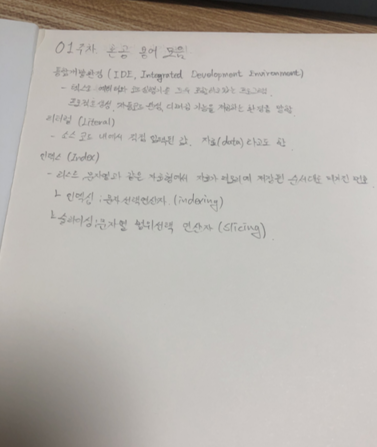 01주차 혼공 용어 모음
통합개발환경 (IDE, Integrated Development Environment)
- 텍스트 에디터와
프로그램 기능을 제공하는 환경을 말함
리터럴 (literal)
- 소스 코드 내에서 직접 입력된 값. 자료(data)라고도 함
인덱스 (Index)
- 리스트, 문자열과 같은 자료형에서 저장된 순서대로 매겨진 번호.
ㄴ 인덱싱 : 문자 선택 연산자 (indexing)
ㄴ 슬라이싱 : 문자열 범위 선택 연산자 (slicing)